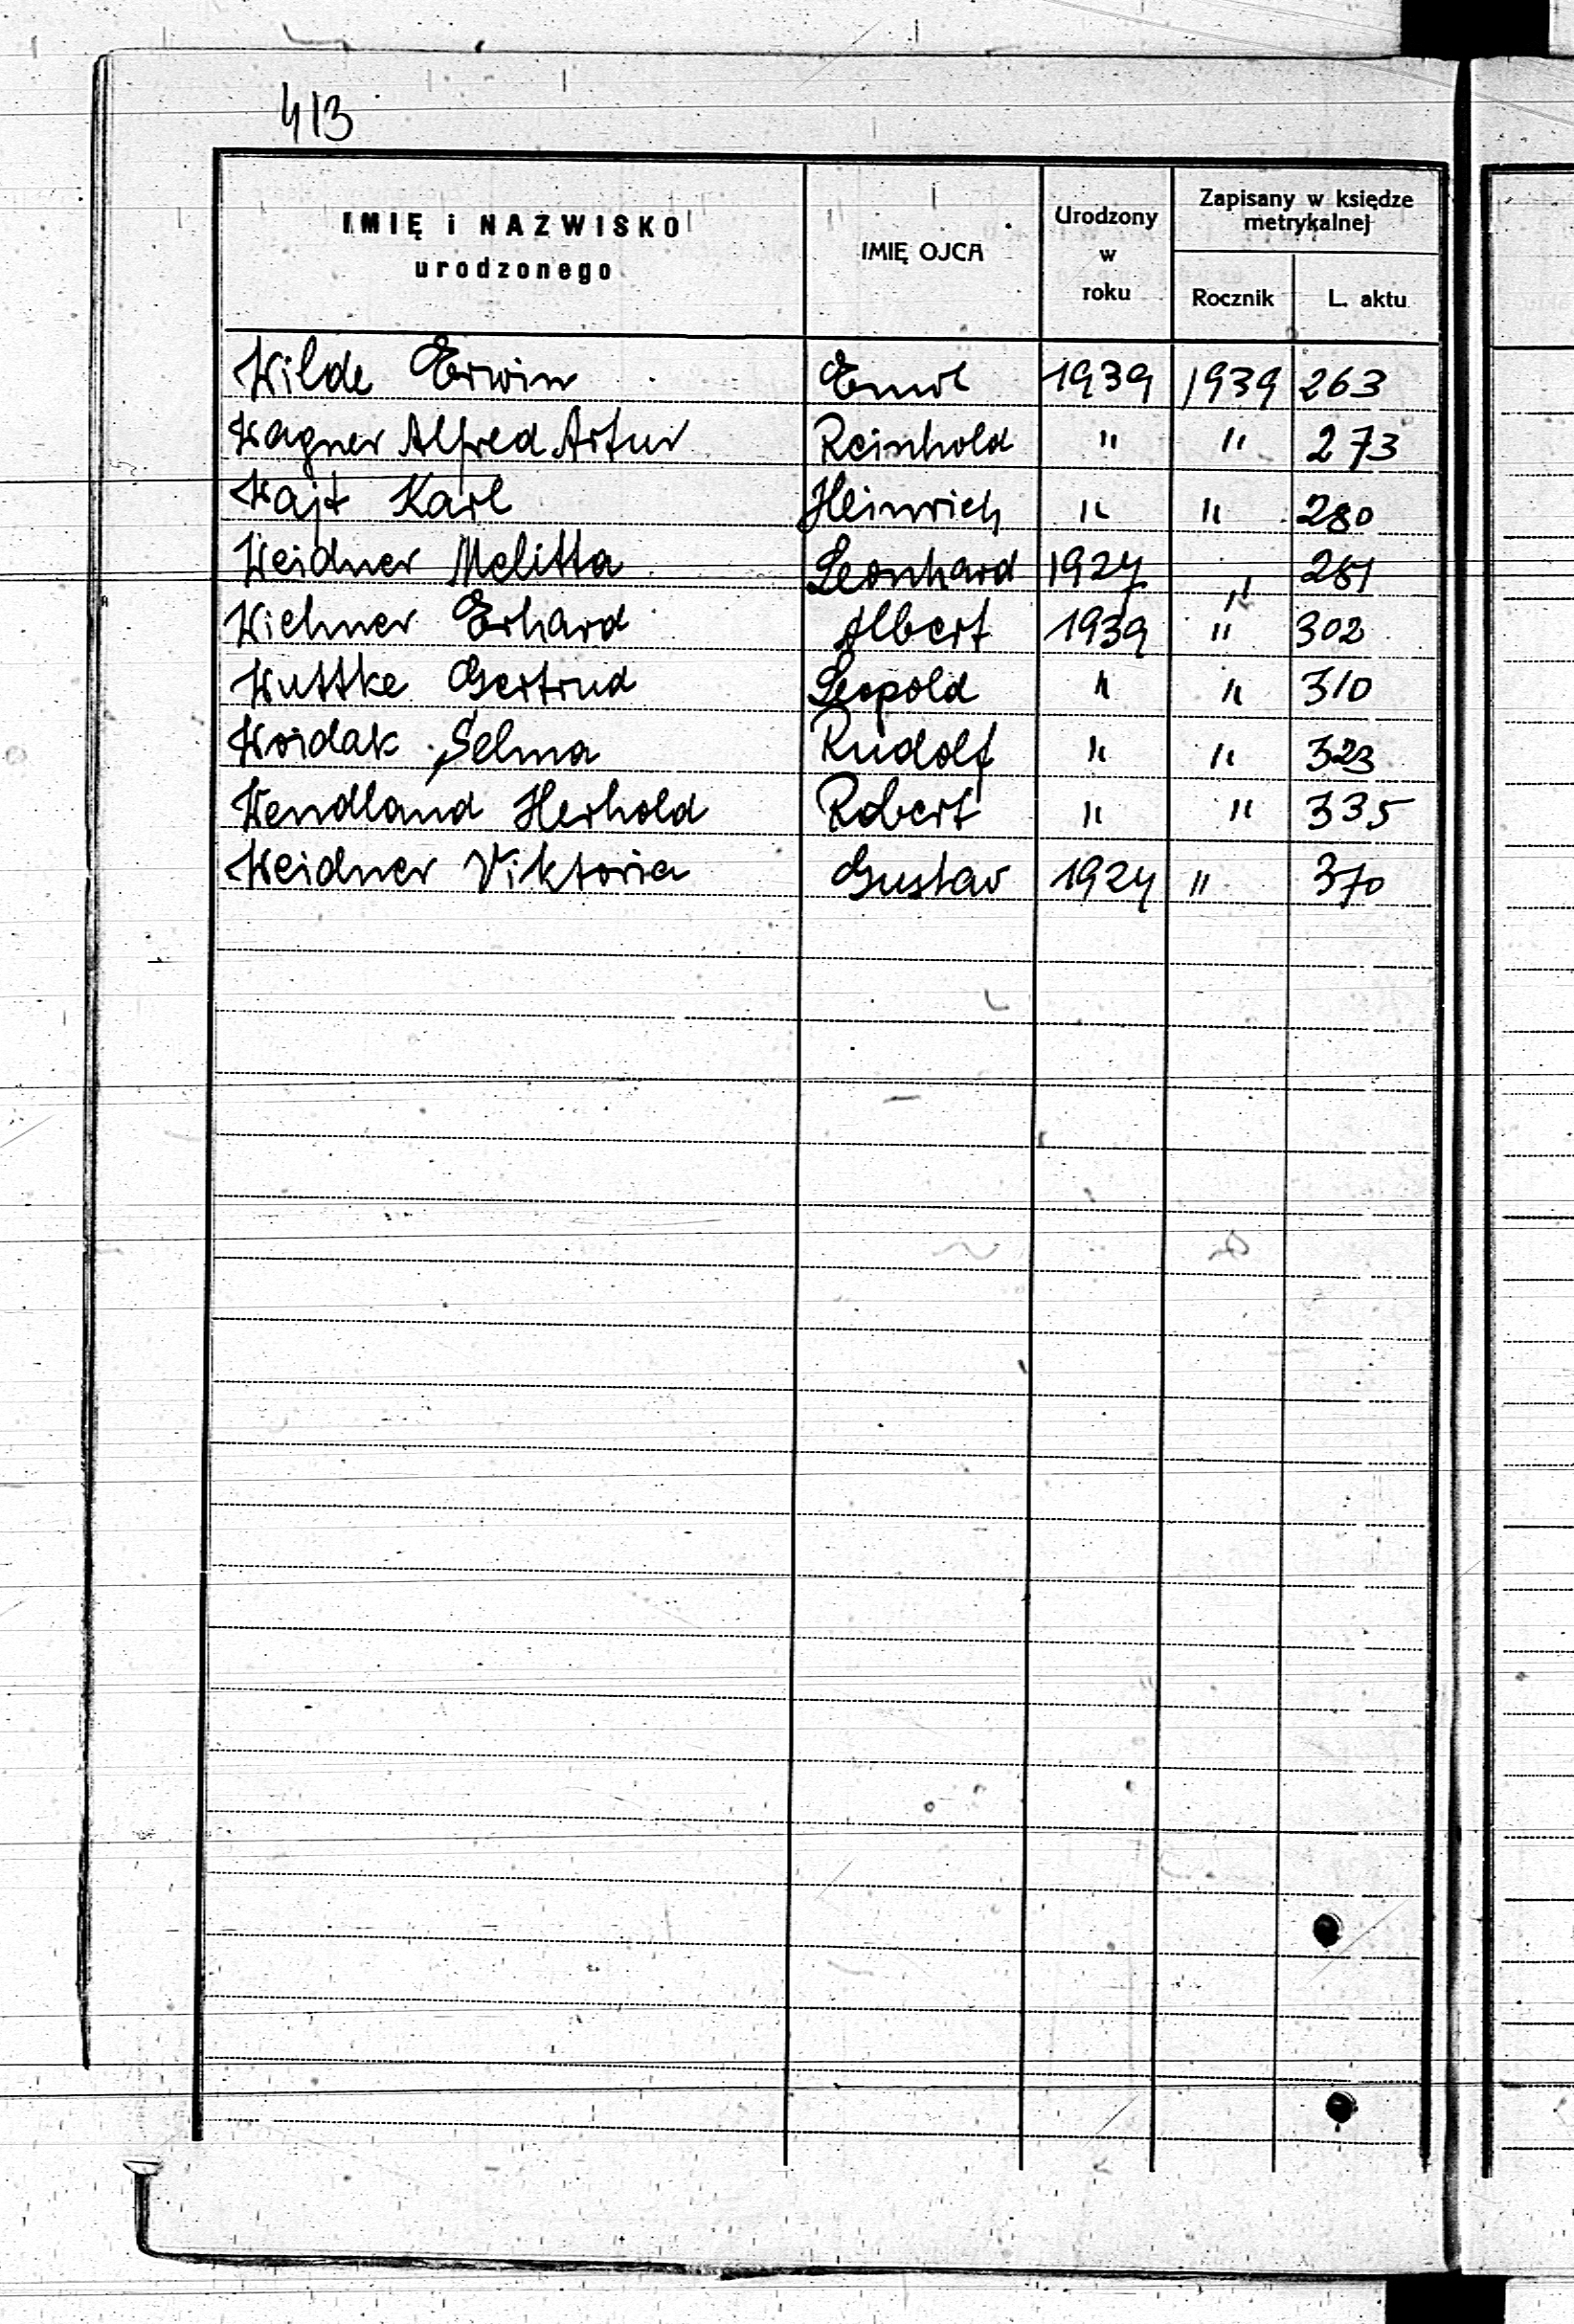 413
IMIĘ i NAZWISKO
urodzonego
IMIĘ OJCA
Urodzony
w
roku
Zapisany w księdze
metrykalnej
Rocznik
L. aktu
Wilde Erwin Emil 1939 1939 263
Wagner Alfred Artur Reinhold " " 273
Wajt Karl Heinrich " " 280
Weidner Melitta Leonhard 1927 " 281
Wiehner Erhard Albert 1939 " 302
Wuttke Gertrud Leopold " " 310
Woidak Selma Rudolf " " 323
Wendland Herhold Robert " " 335
Weidner Viktoria Gustav 1924 " 370